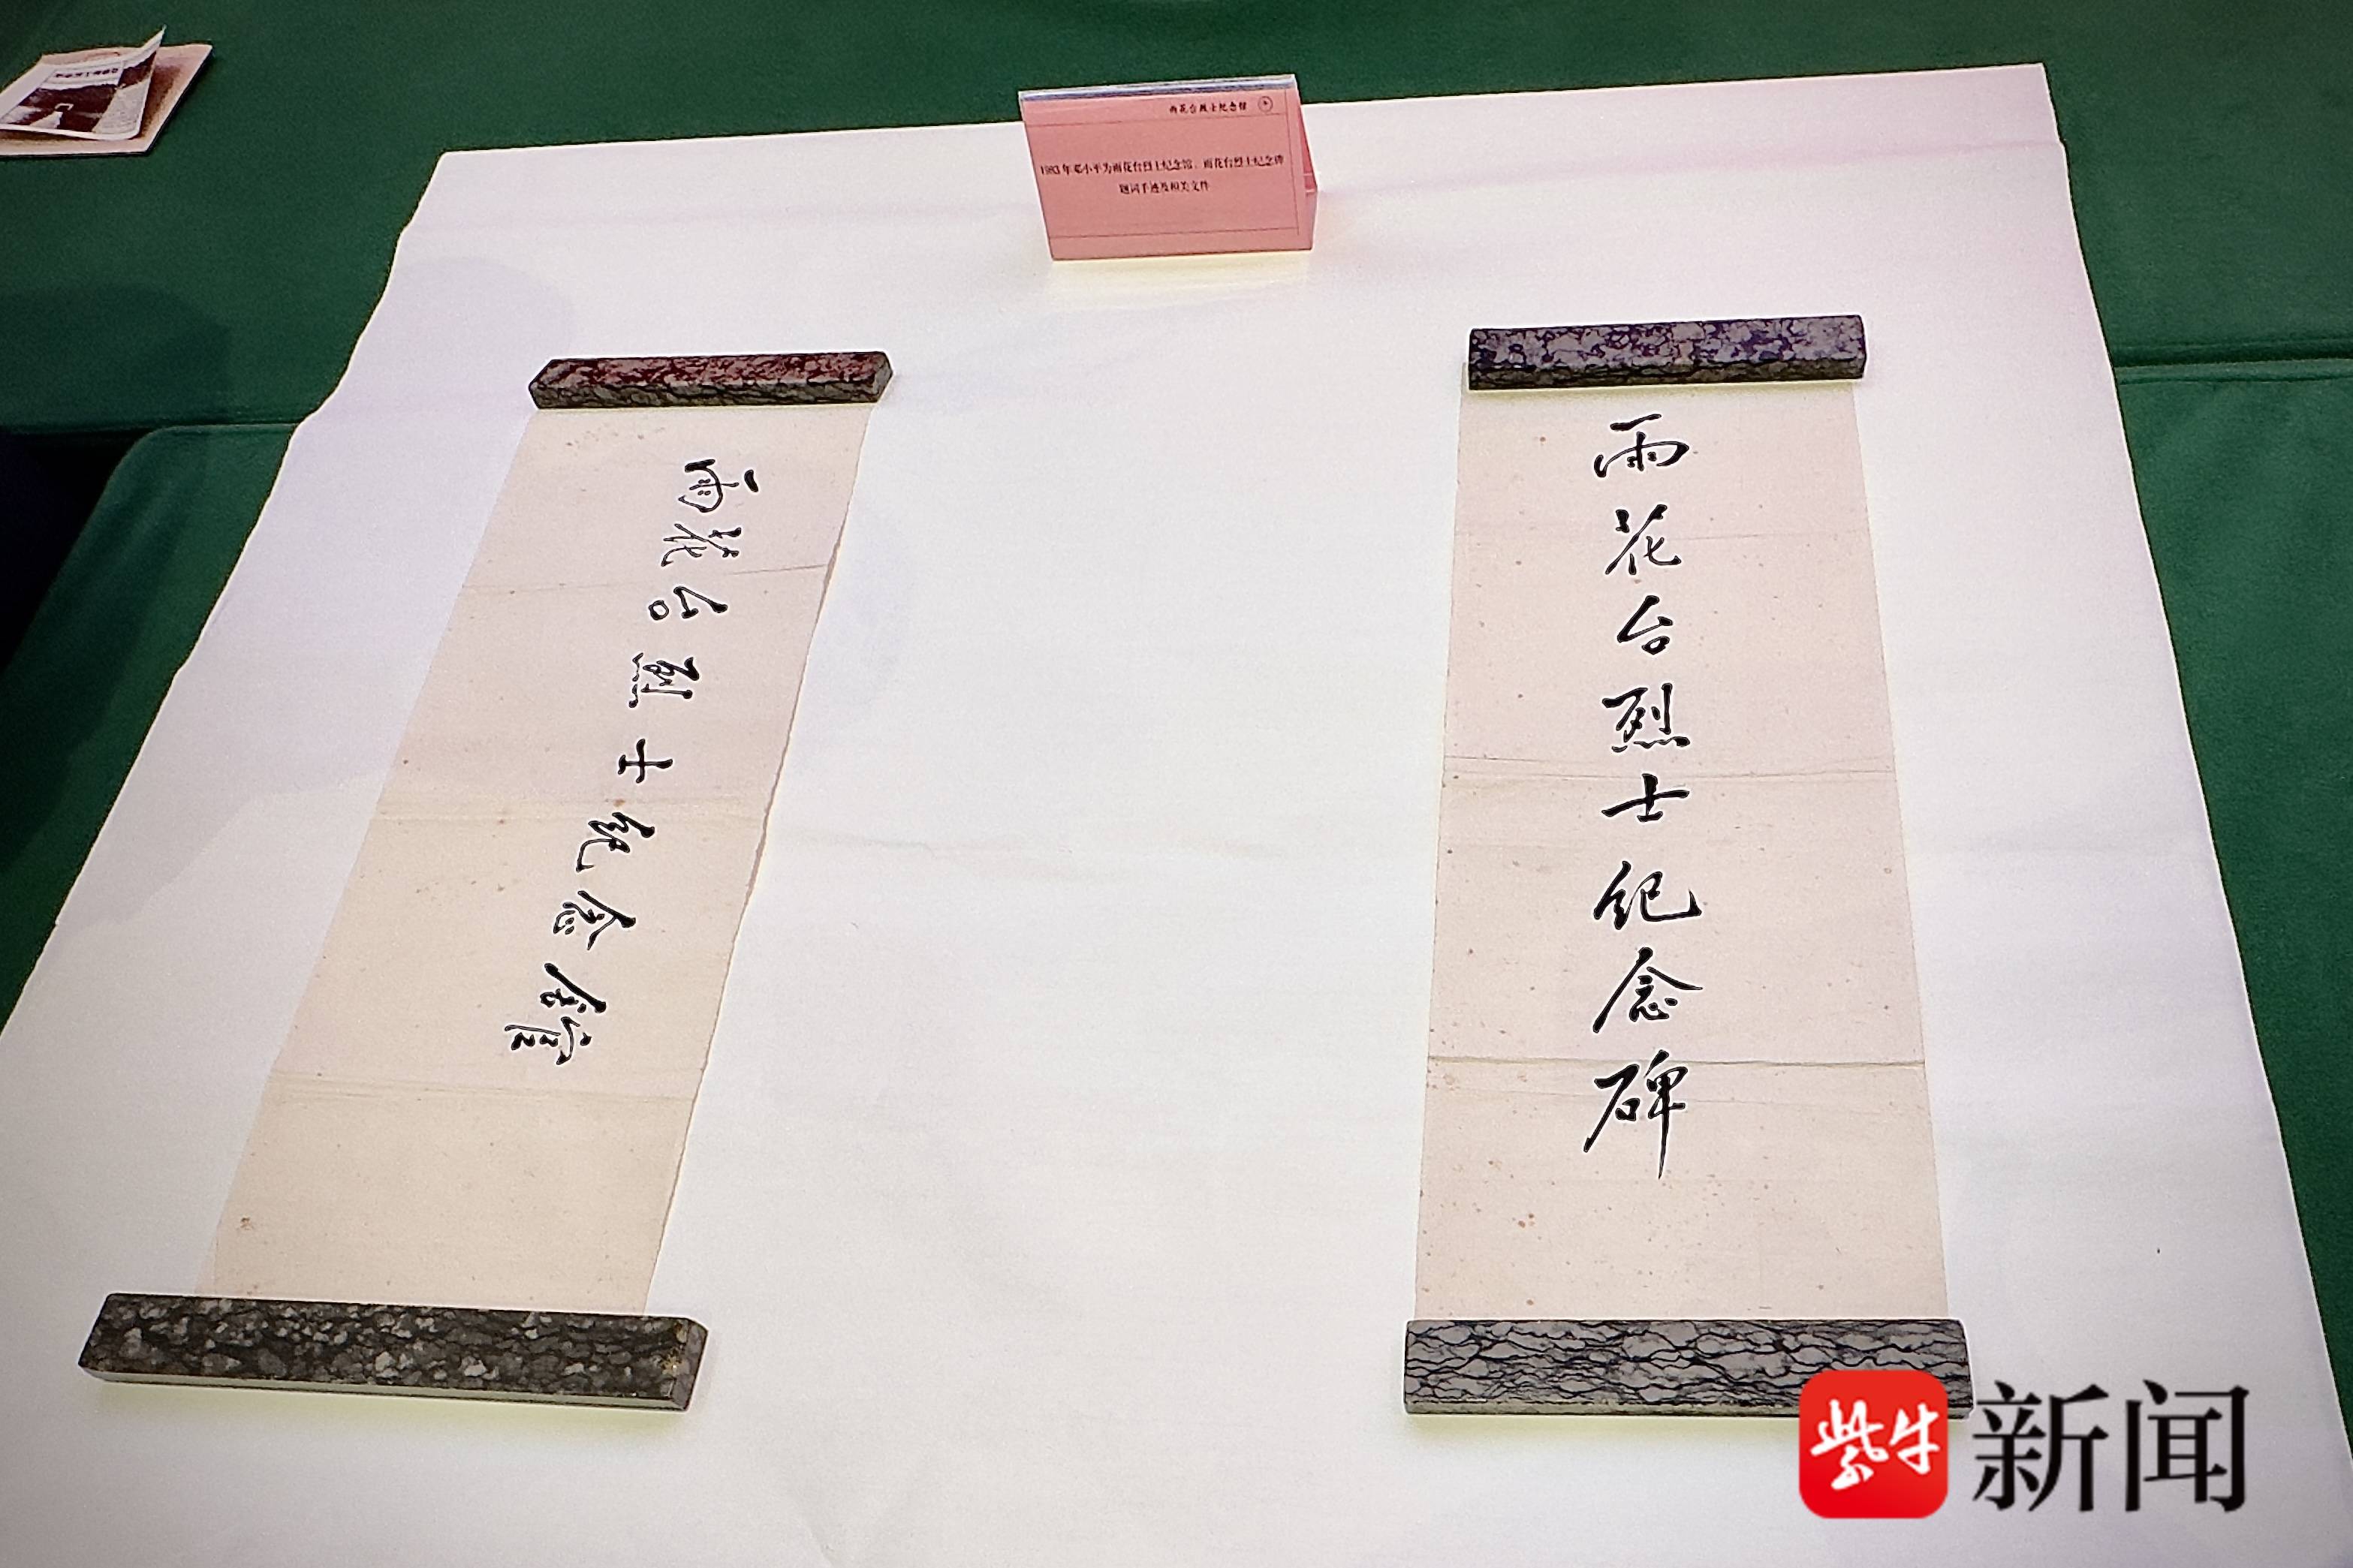 雨花台烈士纪念馆
1983年邓小平为雨花台烈士纪念馆、雨花台烈士纪念碑
题词手迹及相关文件
雨花台烈士纪念碑
雨花台烈士纪念馆
紫牛新闻